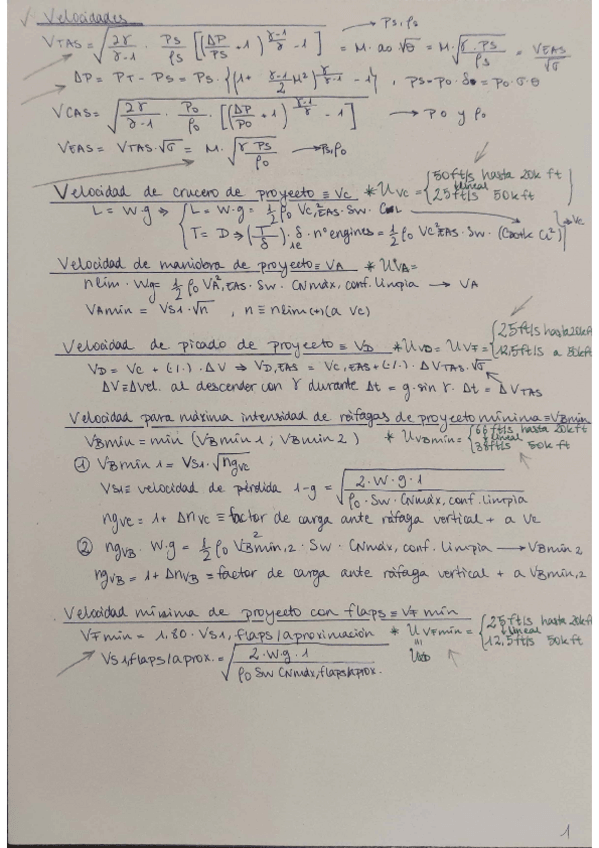 ✓ Velocidades
→ Ps, ρs
VTAS = √(2γ/(γ-1) · Ps/ρs [(ΔP/Ps + 1)^((γ-1)/γ) - 1]) = M · ao √θ = M √(γ · Ps/ρs) = VEAS/√σ
ΔP = PT - Ps = Ps · {(1 + (γ-1)/2 M²)^(γ/(γ-1)) - 1}, Ps = Po · δ = Po · σ · θ
VCAS = √(2γ/(γ-1) · Po/ρo [(ΔP/Po + 1)^((γ-1)/γ) - 1]) → Po y ρo
VEAS = VTAS · √σ = M · √(γ Ps/ρo) → Ps, ρo
Velocidad de crucero de proyecto ≡ Vc * UVC = {50 ft/s hasta 20k ft
lineal
25 ft/s 50k ft}
L = W·g ⇒ {L = W·g = 1/2 ρo Vc,²EAS · Sw · CL
T = D ⇒ (T/δ) · δ · nº engines = 1/2 ρo Vc²EAS · Sw · (CDo + k CL²)} → Vc
1E
Velocidad de maniobra de proyecto ≡ VA * UVA =
nlim · Wg = 1/2 ρo VA²,EAS · Sw · CNmáx, conf. limpia → VA
VAmín = VS1 · √n , n ≡ nlim(+)(a Vc)
Velocidad de picado de proyecto ≡ VD * UVD = UVF = {25 ft/s hasta 20k ft
12,5 ft/s a 50k ft
VD = Vc + (·/·) · ΔV ⇒ VD,EAS = Vc,EAS + (·/·) · ΔVTAS · √σ
ΔV ≡ Δvel. al descender con γ durante Δt = g · sin γ · Δt = ΔVTAS
Velocidad para máxima intensidad de ráfagas de proyecto mínima ≡ VBmín
VBmín = mín (VBmín 1 ; VBmín 2) * UVBmín = {66 ft/s hasta 20k ft
lineal
38 ft/s 50k ft
① VBmín 1 = VS1 · √ngvc
VS1 ≡ velocidad de pérdida 1-g = √(2 · W · g · 1 / ρo · Sw · CNmáx, conf. limpia)
ngvc = 1 + Δnvc ≡ factor de carga ante ráfaga vertical + a Vc
② ngVB · W·g = 1/2 ρo V²Bmín,2 · Sw · CNmáx, conf. limpia → VBmín 2
ngVB = 1 + ΔnVB ≡ factor de carga ante ráfaga vertical + a VBmín,2
Velocidad mínima de proyecto con flaps ≡ VF mín
VFmín = 1,80 · VS1, flaps/aproximación * UVFmín = {25 ft/s hasta 20k ft
lineal
12,5 ft/s 50k ft
=
UVD
VS1, flaps/aprox. = √(2 · W·g · 1 / ρo Sw CNmáx, flaps/aprox.)
1